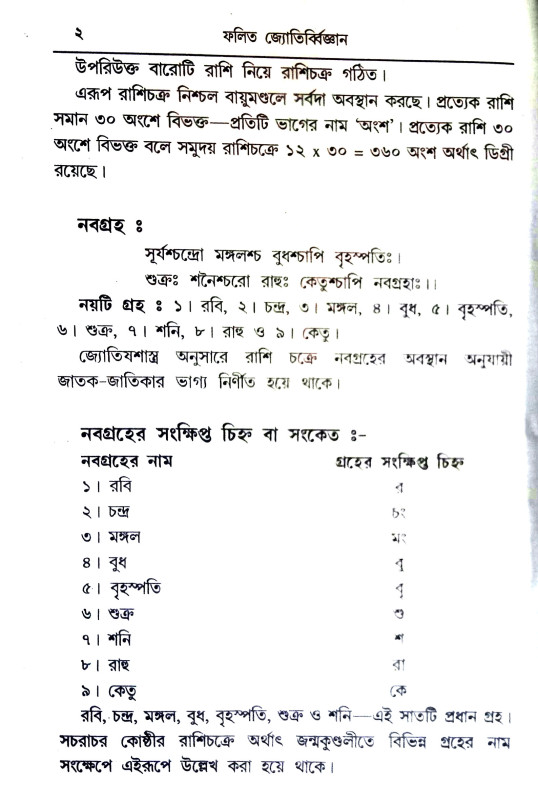 ২
ফলিত জ্যোতির্ব্বিজ্ঞান
উপরিউক্ত বারোটি রাশি নিয়ে রাশিচক্র গঠিত।
এরূপ রাশিচক্র নিশ্চল বায়ুমণ্ডলে সর্বদা অবস্থান করছে। প্রত্যেক রাশি
সমান ৩০ অংশে বিভক্ত—প্রতিটি ভাগের নাম ‘অংশ’। প্রত্যেক রাশি ৩০
অংশে বিভক্ত বলে সমুদয় রাশিচক্রে ১২ x ৩০ = ৩৬০ অংশ অর্থাৎ ডিগ্রী
রয়েছে।
নবগ্রহ ঃ
সূর্যশ্চন্দ্রো মঙ্গলশ্চ বুধশ্চাপি বৃহস্পতিঃ।
শুক্রঃ শনৈশ্চরো রাহুঃ কেতুশ্চাপি নবগ্রহাঃ।।
নয়টি গ্রহ ঃ ১। রবি, ২। চন্দ্র, ৩। মঙ্গল, ৪। বুধ, ৫। বৃহস্পতি,
৬। শুক্র, ৭। শনি, ৮। রাহু ও ৯। কেতু।
জ্যোতিষশাস্ত্র অনুসারে রাশি চক্রে নবগ্রহের অবস্থান অনুযায়ী
জাতক-জাতিকার ভাগ্য নির্ণীত হয়ে থাকে।
নবগ্রহের সংক্ষিপ্ত চিহ্ন বা সংকেত ঃ-
নবগ্রহের নাম গ্রহের সংক্ষিপ্ত চিহ্ন
১। রবি র
২। চন্দ্র চং
৩। মঙ্গল মং
৪। বুধ বু
৫। বৃহস্পতি বৃ
৬। শুক্র শু
৭। শনি শ
৮। রাহু রা
৯। কেতু কে
রবি, চন্দ্র, মঙ্গল, বুধ, বৃহস্পতি, শুক্র ও শনি—এই সাতটি প্রধান গ্রহ।
সচরাচর কোষ্ঠীর রাশিচক্রে অর্থাৎ জন্মকুণ্ডলীতে বিভিন্ন গ্রহের নাম
সংক্ষেপে এইরূপে উল্লেখ করা হয়ে থাকে।